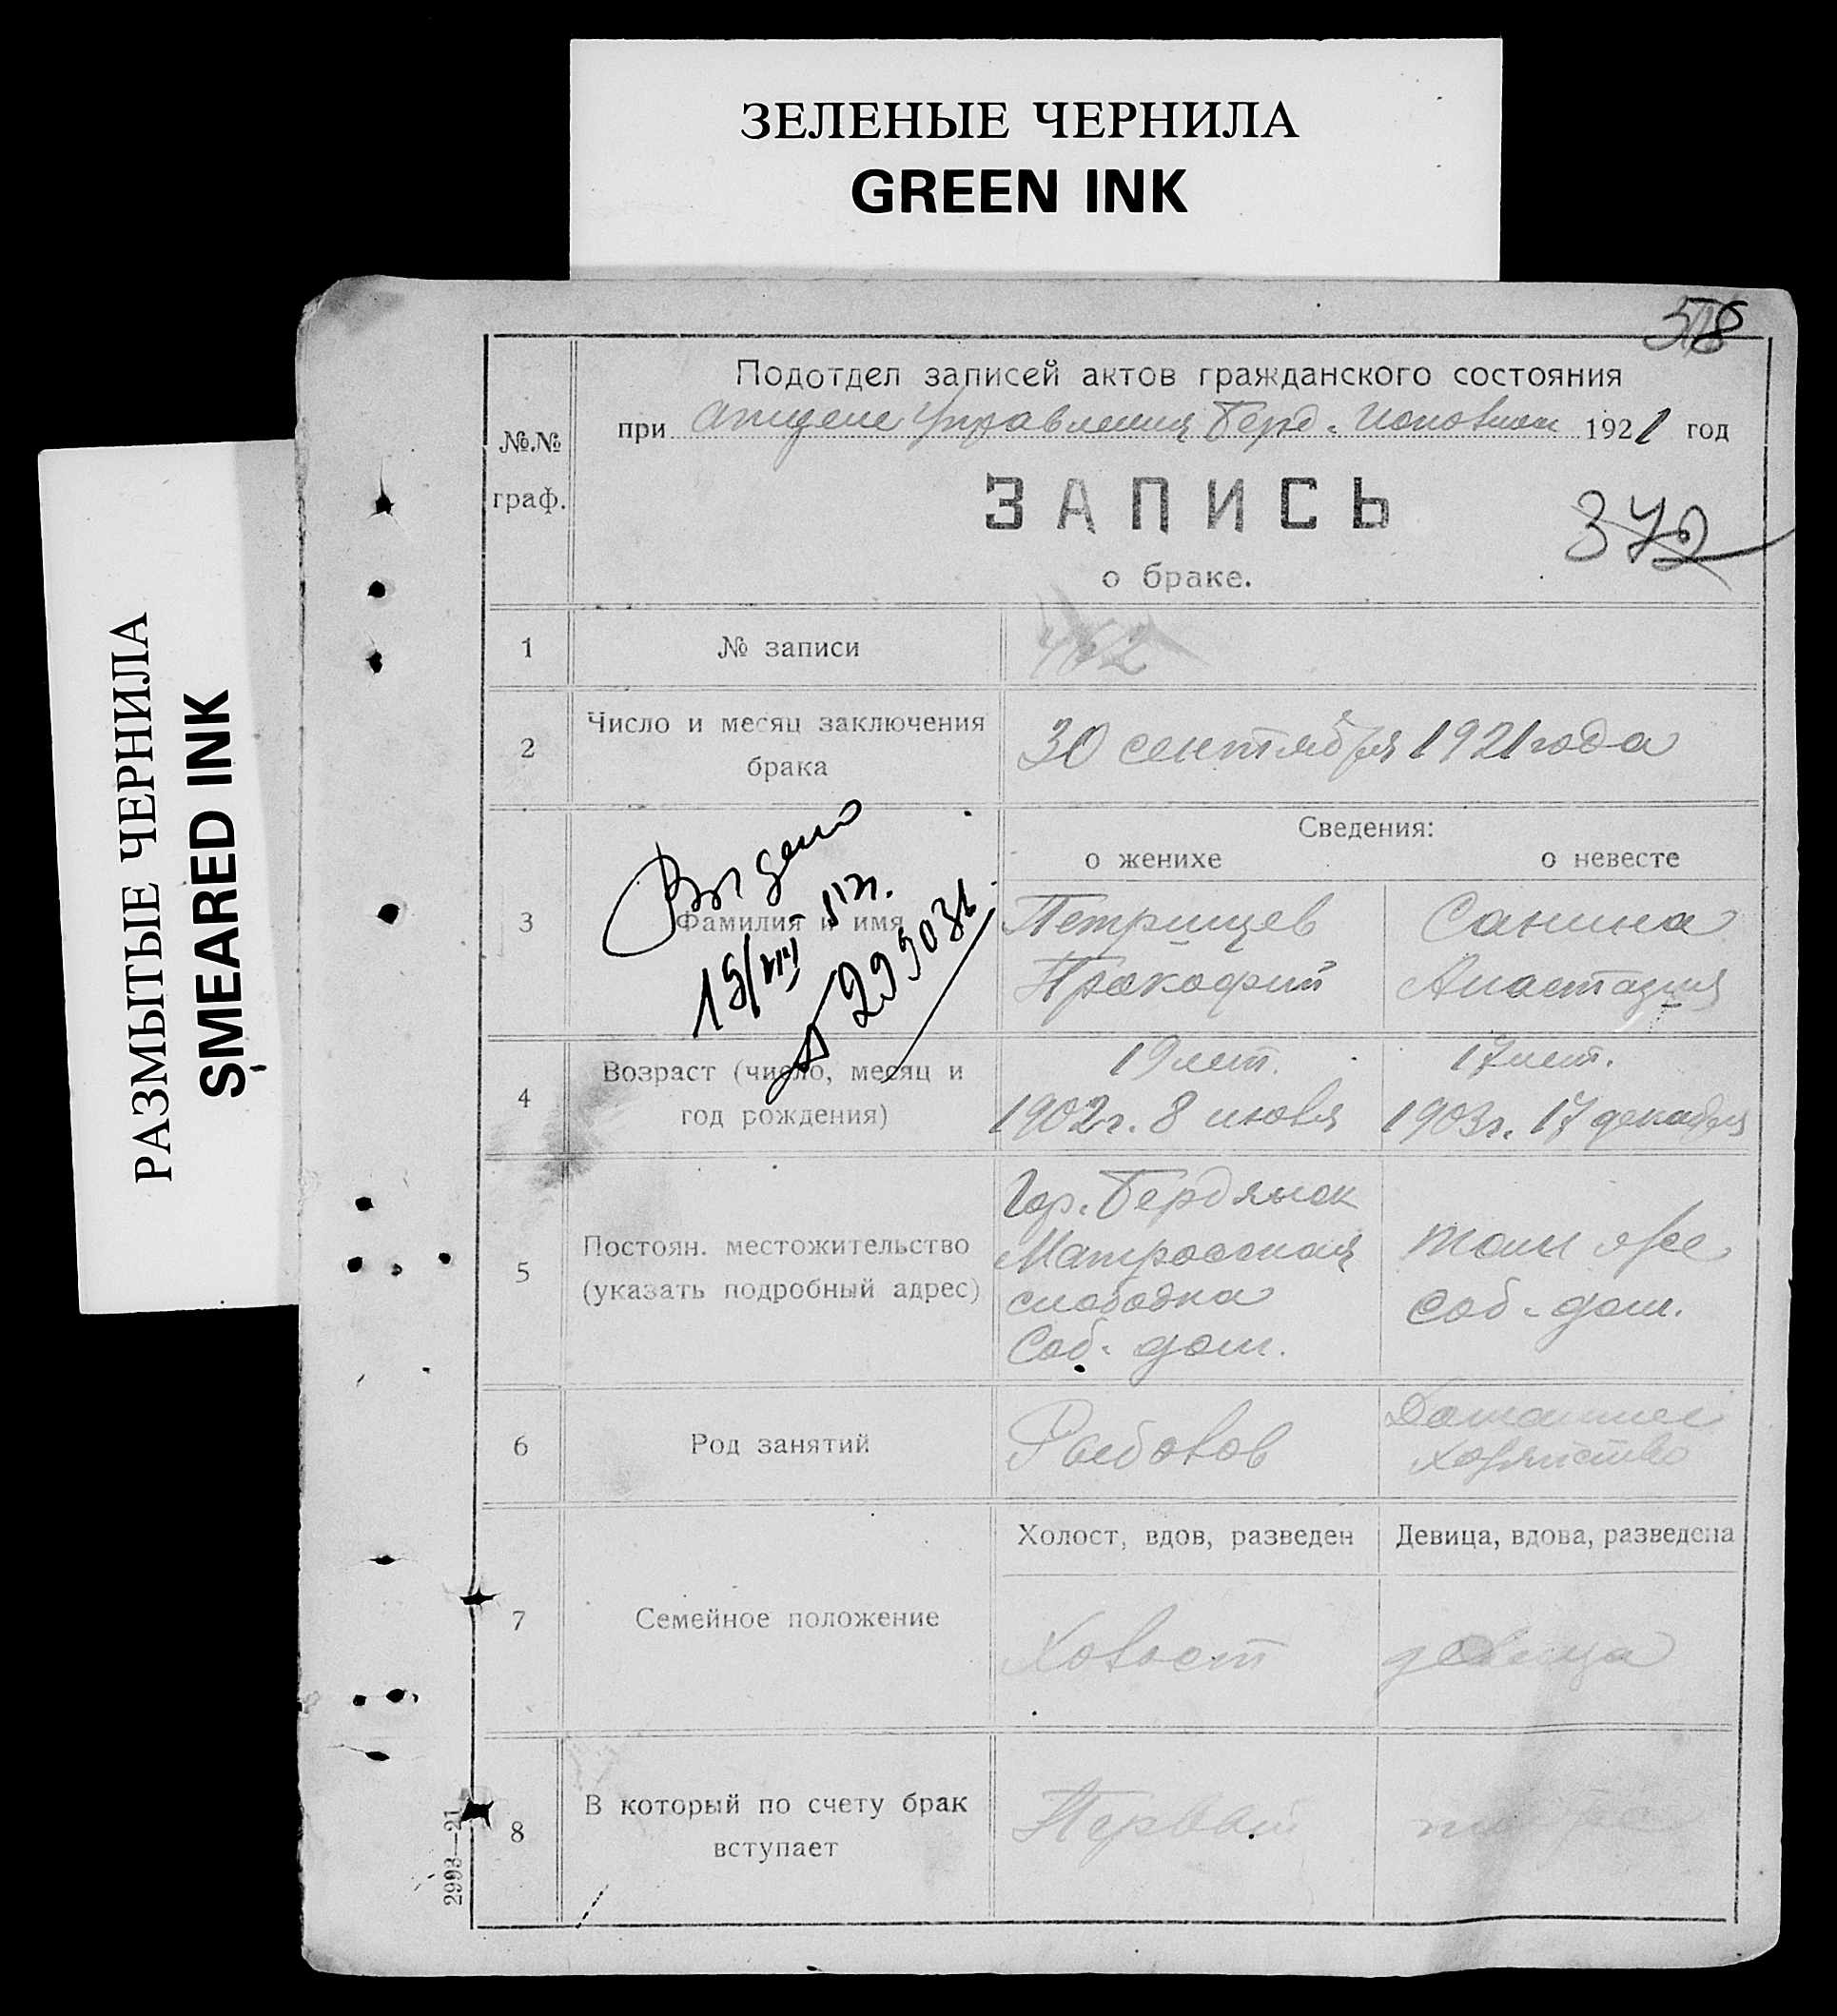 ЗЕЛЕНЫЕ ЧЕРНИЛА
GREEN INK
РАЗМЫТЫЕ ЧЕРНИЛА
SMEARED INK
№.№ граф.
Подотдел записей актов гражданского состояния
при отделе Управления Берд. Исполком 1921 год
ЗАПИСЬ
372
о браке.
1 № записи 462
2 Число и месяц заключения
брака
30 сентября 1921 года
Сведения:
о женихе о невесте
3 Фамилия и имя
Петрищев Санина
Прокофий Анастазия
Выдано
4 Возраст (число, месяц и
год рождения)
19 лет. 17 лет.
1902 г. 8 июля 1903 г. 17 декабря
5 Постоян. местожительство
(указать подробный адрес)
Гор. Бердянск
Матросская
слободка
Соб. дом.
там же
соб. дом.
6 Род занятий
Рыболов
Домашнее
хозяйство
7 Семейное положение
Холост, вдов, разведен Девица, вдова, разведена
Холост девица
8 В который по счету брак
вступает
Первый
2993—21